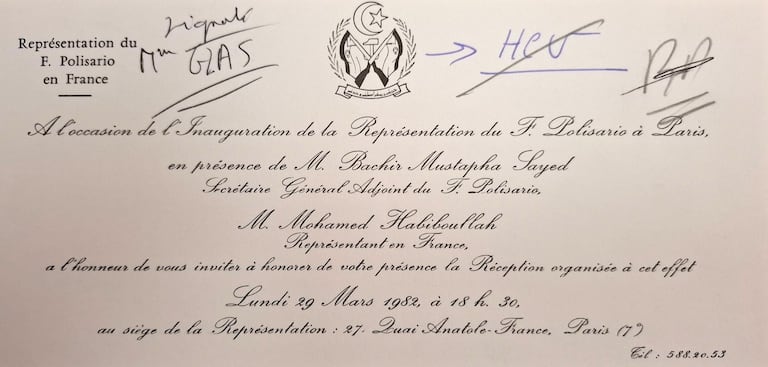 Représentation du
F. Polisario
en France
Mme GLAS
HCV
A l'occasion de l'Inauguration de la Représentation du F. Polisario à Paris,
en présence de M. Bachir Mustapha Sayed
Secrétaire Général Adjoint du F. Polisario,
M. Mohamed Habiboullah
Représentant en France,
a l'honneur de vous inviter à honorer de votre présence la Réception organisée à cet effet
Lundi 29 Mars 1982, à 18 h. 30,
au siège de la Représentation : 27. Quai Anatole-France, Paris (7e)
Tél : 588.20.53